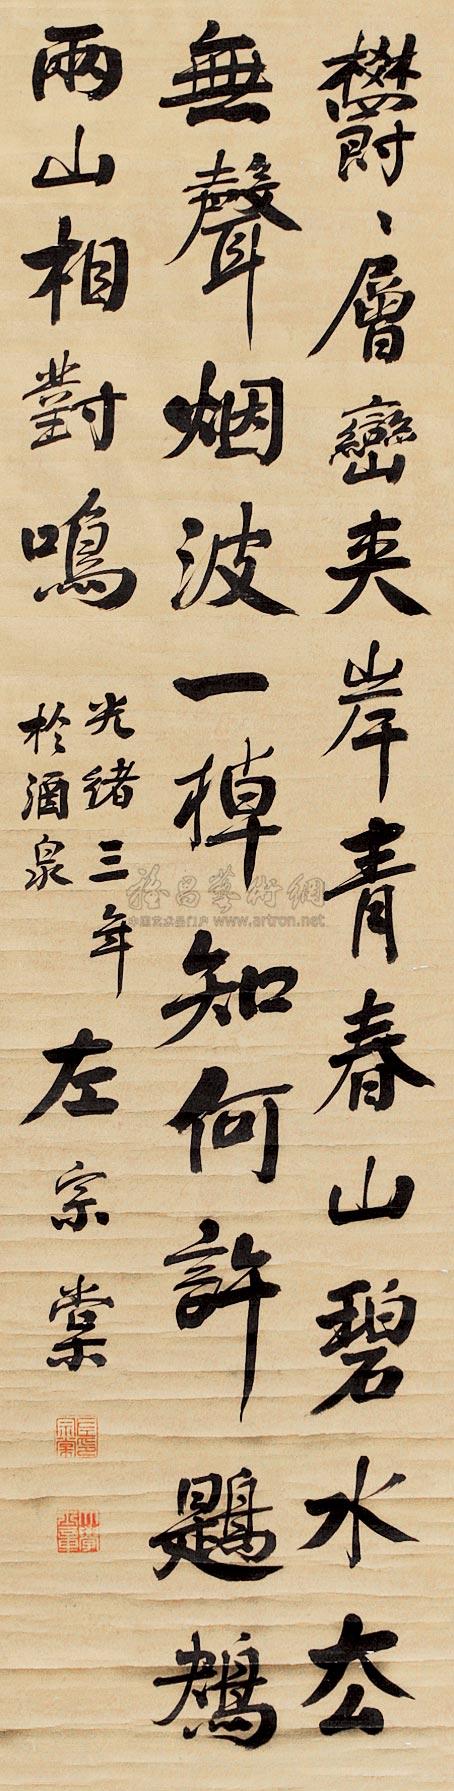 欎〻層巒夾岸青春山碧水去
無聲烟波一棹知何許鶗鴂
兩山相對鳴
光緒三年
於酒泉
左宗棠
雅昌藝術網
中国艺术品门户 www.artron.net